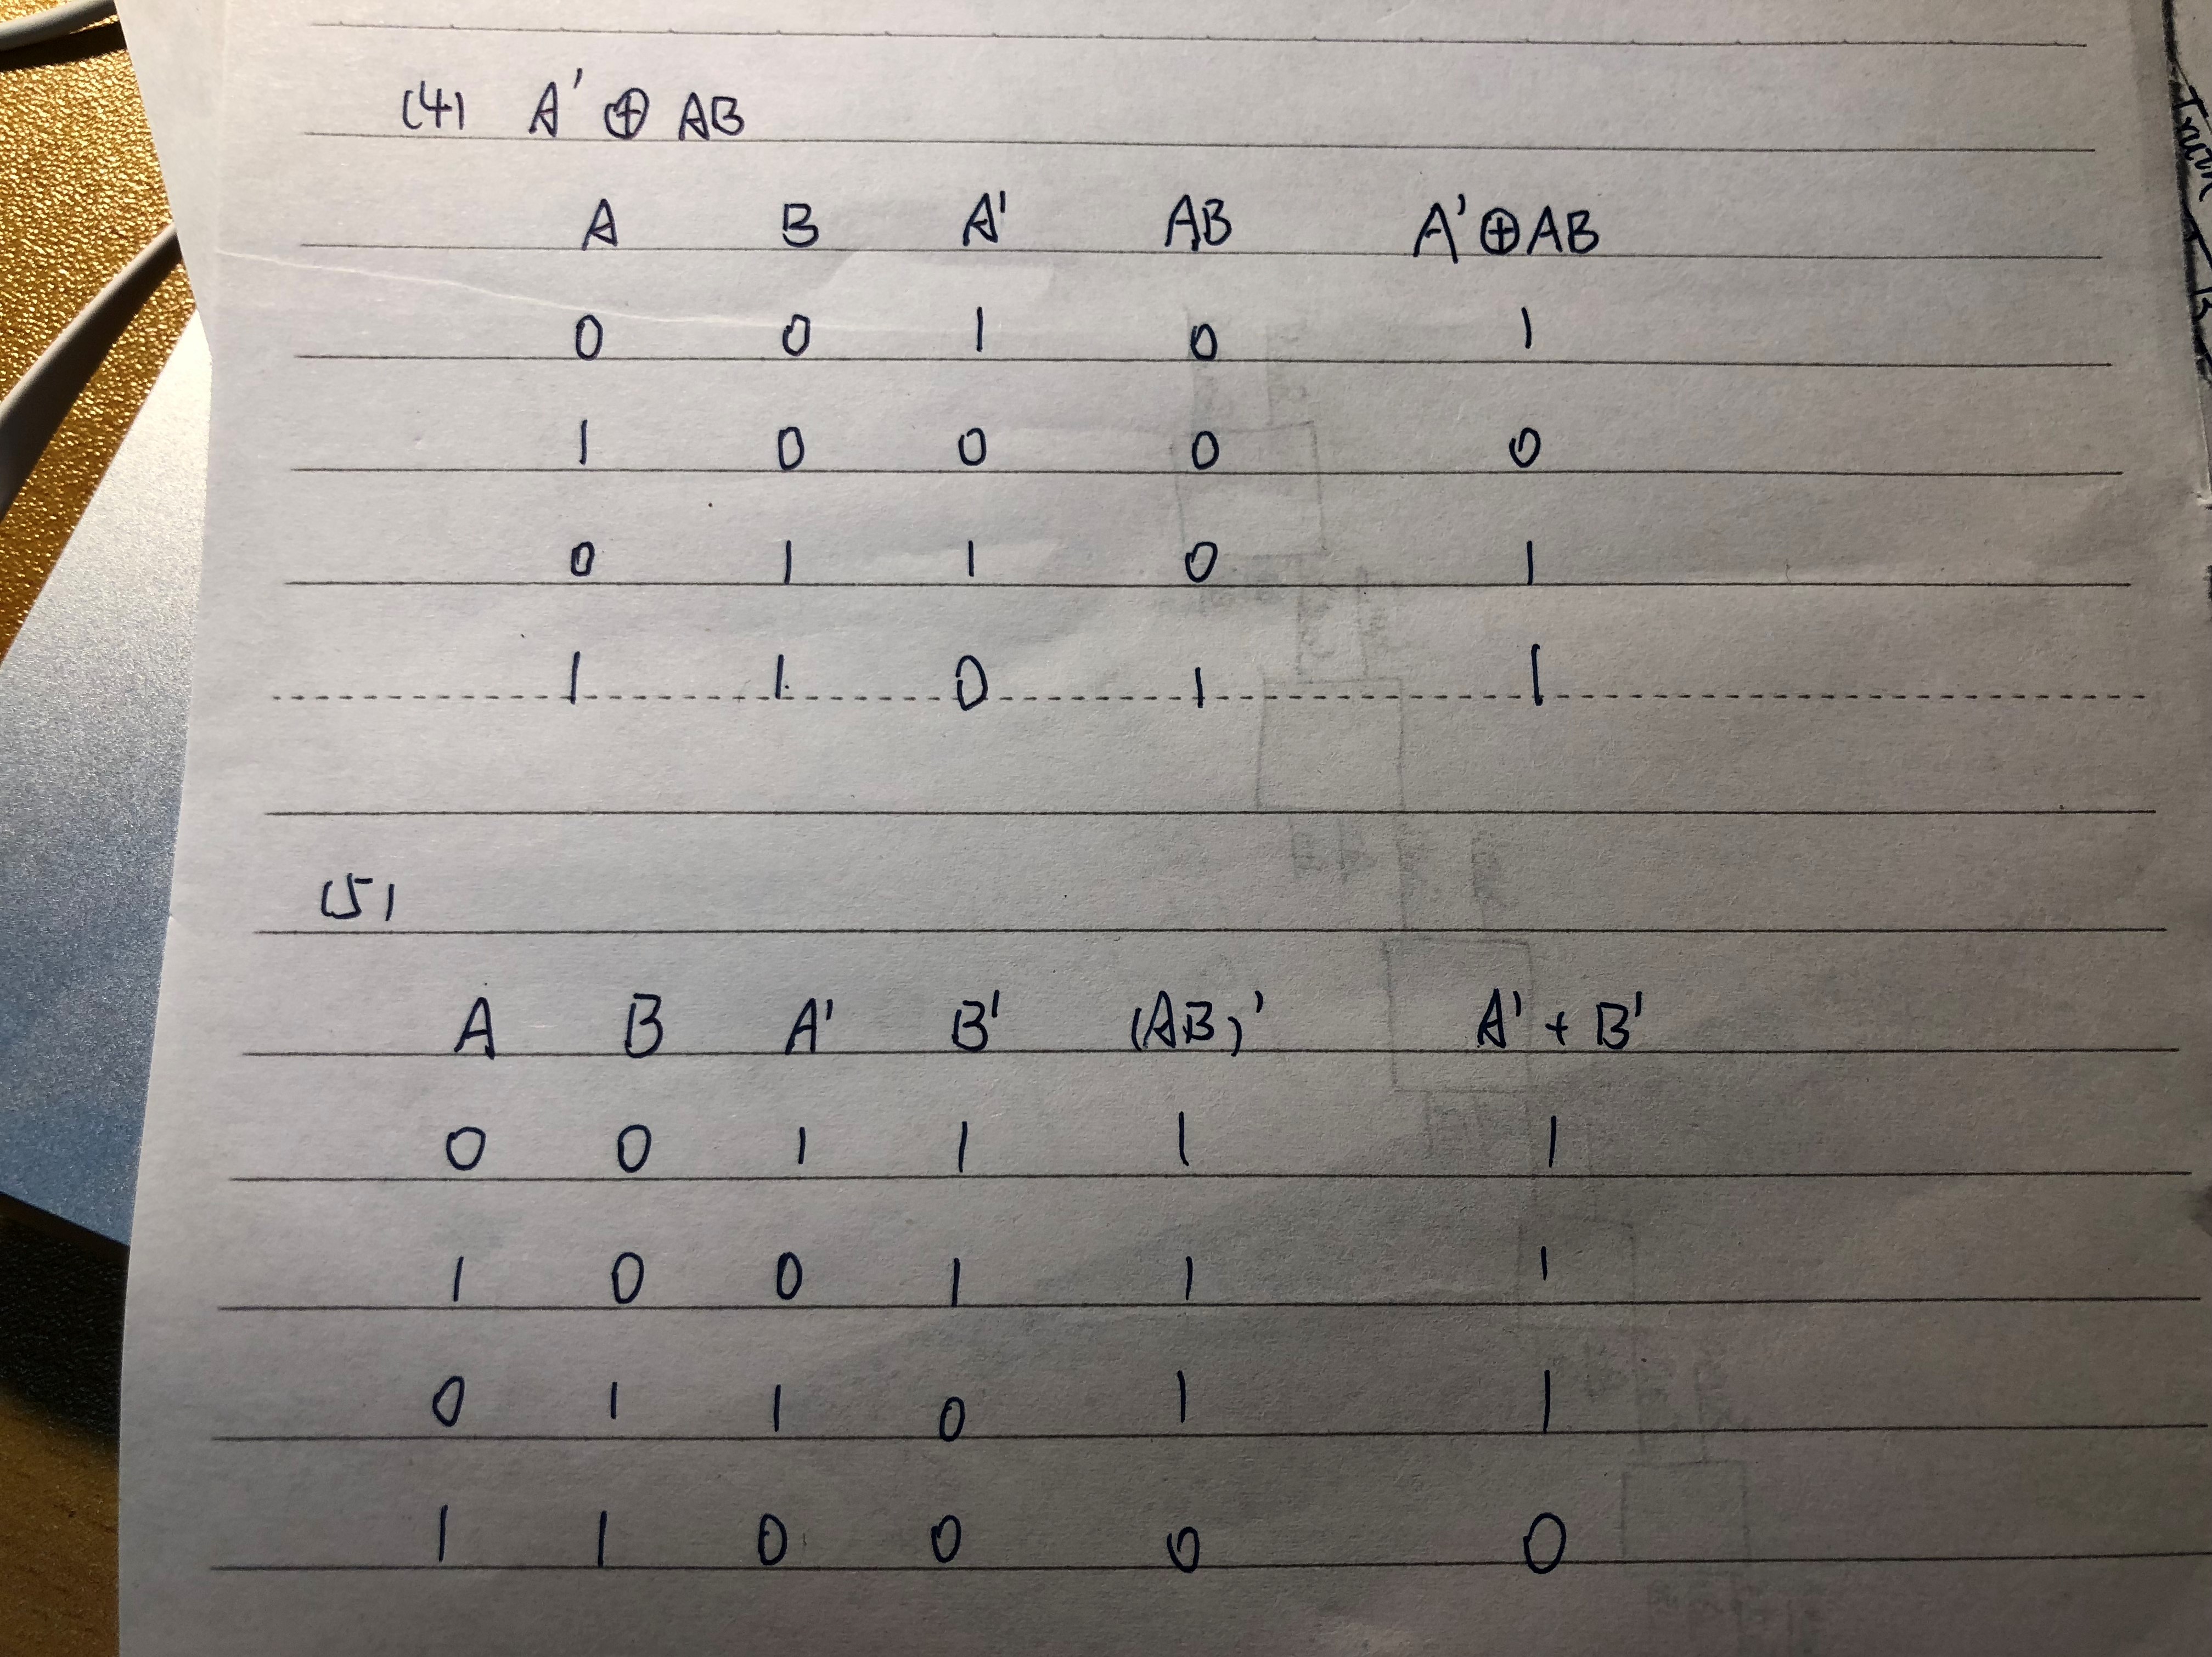 (4) A' ⊕ AB
A B A' AB A' ⊕ AB
0 0 1 0 1
1 0 0 0 0
0 1 1 0 1
1 1 0 1 1
(5)
A B A' B' (AB)' A' + B'
0 0 1 1 1 1
1 0 0 1 1 1
0 1 1 0 1 1
1 1 0 0 0 0